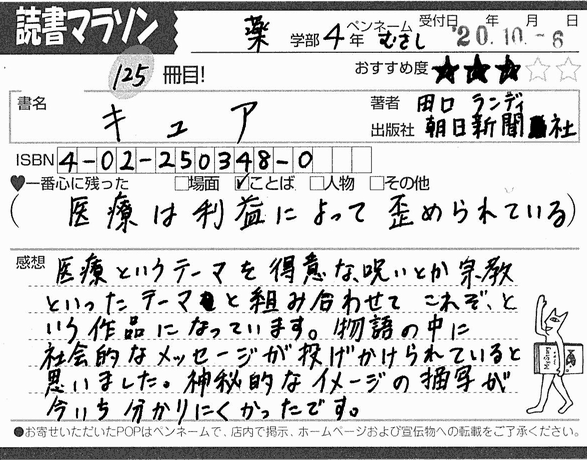 読書マラソン
薬 学部 4 年 ペンネーム むさし 受付日 年 月 日 '20.10.-6
125 冊目!
おすすめ度 ★★★☆☆
書名 キュア
著者 田口 ランディ
出版社 朝日新聞社
ISBN 4-02-250348-0
♥一番心に残った □場面 ☑ことば □人物 □その他
(医療は利益によって歪められている)
感想 医療というテーマを得意な、呪いとか宗教
といったテーマと組み合わせて これぞ、と
いう作品になっています。物語の中に
社会的なメッセージが投げかけられていると
思いました。神秘的なイメージの描写が
今いち分かりにくかったです。
●お寄せいただいたPOPはペンネームで、店内で掲示、ホームページおよび宣伝物への転載をご了承ください。